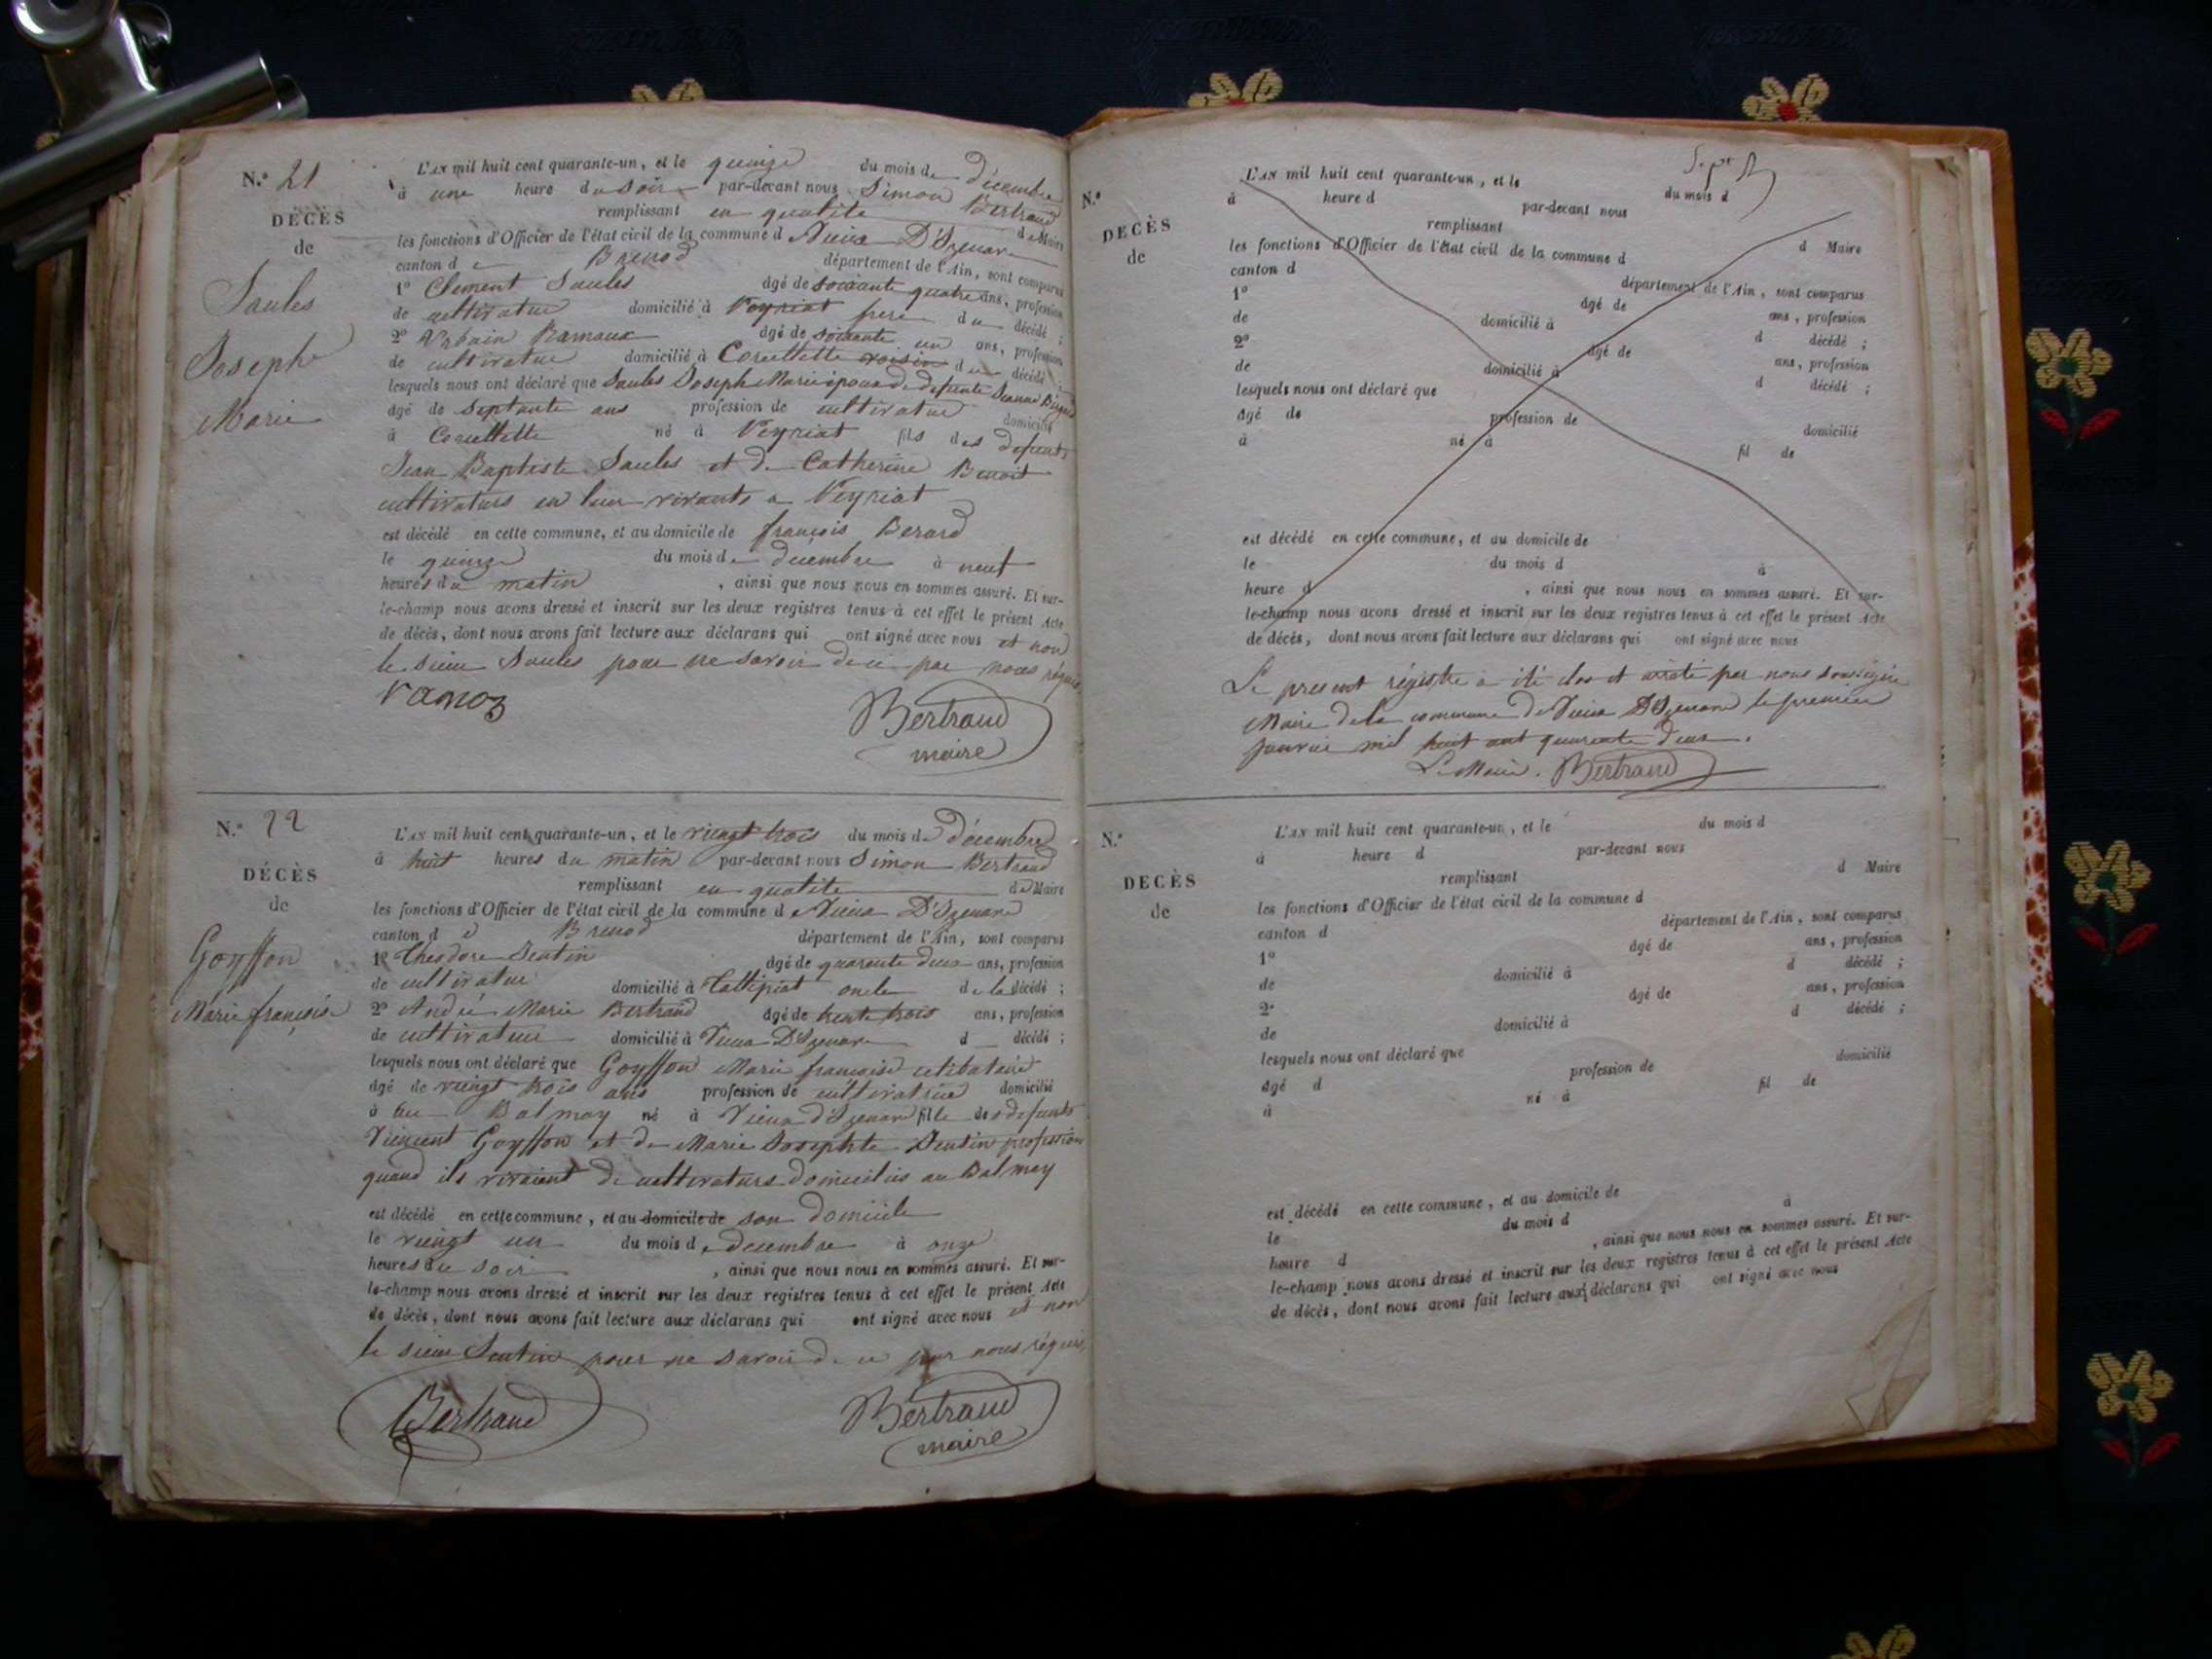 N.° 21
DÉCÈS
de
Saules
Joseph
Marie
L'AN mil huit cent quarante-un, et le quinze du mois de décembre
à une heure du soir par-devant nous Simon Bertrand
remplissant en qualité de Maire
les fonctions d'Officier de l'état civil de la commune de Vieux D'Izenave
canton de Brenod département de l'Ain, sont comparus
1° Clement Saules âgé de soixante quatre ans, profession
de cultivateur domicilié à Veyriat frere du décédé ;
2° Urbain Ramaux âgé de soixante un ans, profession
de cultivateur domicilié à Corcellette voisin du décédé ;
lesquels nous ont déclaré que Saules Joseph Marie époux de defunte Jeanne
âgé de septante ans profession de cultivateur domicilié
à Corcellette né à Veyriat fils des defunts
Jean Baptiste Saules et de Catherine Benoit
cultivateurs en leur vivants a Veyriat
est décédé en cette commune, et au domicile de françois Berard
le quinze du mois de decembre à neuf
heures du matin , ainsi que nous nous en sommes assuré. Et sur-
le-champ nous avons dressé et inscrit sur les deux registres tenus à cet effet le présent Acte
de décès, dont nous avons fait lecture aux déclarans qui ont signé avec nous et non
le sieur Saules pour ne savoir de ce par nous réquis.
ramoz
Bertrand
maire
N.° 22
DÉCÈS
de
Goyffon
Marie françoise
L'AN mil huit cent quarante-un, et le vingt trois du mois de décembre
à huit heures du matin par-devant nous Simon Bertrand
remplissant en qualité de Maire
les fonctions d'Officier de l'état civil de la commune de Vieux D'Izenave
canton de Brenod département de l'Ain, sont comparus
1° Theodore Sentin âgé de quarante deux ans, profession
de cultivateur domicilié à Tallipiat oncle de la décédé ;
2° André Marie Bertrand âgé de trente trois ans, profession
de cultivateur domicilié à Vieux D'Izenave d décédé ;
lesquels nous ont déclaré que Goyffon Marie francoise celibataire
âgé de vingt trois ans profession de cultivatrice domicilié
à au Balmay né à Vieux d'Izenave fille des defunts
Vincent Goyffon et de Marie Josephte Sentin profession
quand ils vivaient de cultivateurs domiciliés au Balmay
est décédé en cette commune, et au domicile de son domicile
le vingt un du mois de decembre à onze
heures du soir , ainsi que nous nous en sommes assuré. Et sur-
le-champ nous avons dressé et inscrit sur les deux registres tenus à cet effet le présent Acte
de décès, dont nous avons fait lecture aux déclarans qui ont signé avec nous et non
le sieur Sentin pour ne savoir de ce par nous réquis,
Bertrand
Bertrand
maire
N.°
DECÈS
de
L'AN mil huit cent quarante-un, et le du mois d
à heure d par-devant nous
remplissant d Maire
les fonctions d'Officier de l'état civil de la commune d
canton d département de l'Ain, sont comparus
1° âgé de ans, profession
de domicilié à d décédé ;
2° âgé de ans, profession
de domicilié à d décédé ;
lesquels nous ont déclaré que
âgé de profession de domicilié
à né à fil de
est décédé en cette commune, et au domicile de
le du mois d à
heure d , ainsi que nous nous en sommes assuré. Et sur-
le-champ nous avons dressé et inscrit sur les deux registres tenus à cet effet le présent Acte
de décès, dont nous avons fait lecture aux déclarans qui ont signé avec nous
Le present régistre a été clos et arrêté par nous soussigné
Maire de la commune de Vieux D'Izenave le premier
janvier mil huit cent quarante deux.
Le Maire. Bertrand
N.°
DECÈS
de
L'AN mil huit cent quarante-un, et le du mois d
à heure d par-devant nous
remplissant d Maire
les fonctions d'Officier de l'état civil de la commune d
canton d département de l'Ain, sont comparus
1° âgé de ans, profession
de domicilié à d décédé ;
2° âgé de ans, profession
de domicilié à d décédé ;
lesquels nous ont déclaré que
âgé d profession de domicilié
à né à fil de
est décédé en cette commune, et au domicile de
le du mois d à
heure d , ainsi que nous nous en sommes assuré. Et sur-
le-champ nous avons dressé et inscrit sur les deux registres tenus à cet effet le présent Acte
de décès, dont nous avons fait lecture aux déclarans qui ont signé avec nous